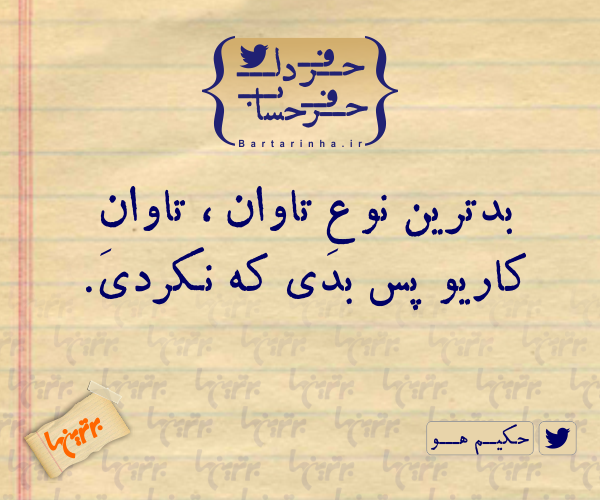 حرف دل
حرف حساب
Bartarinha.ir
بدترین نوعِ تاوان ، تاوانِ
کاریو پس بدَی که نکردیَ.
برترین‌ها
حکیم هو